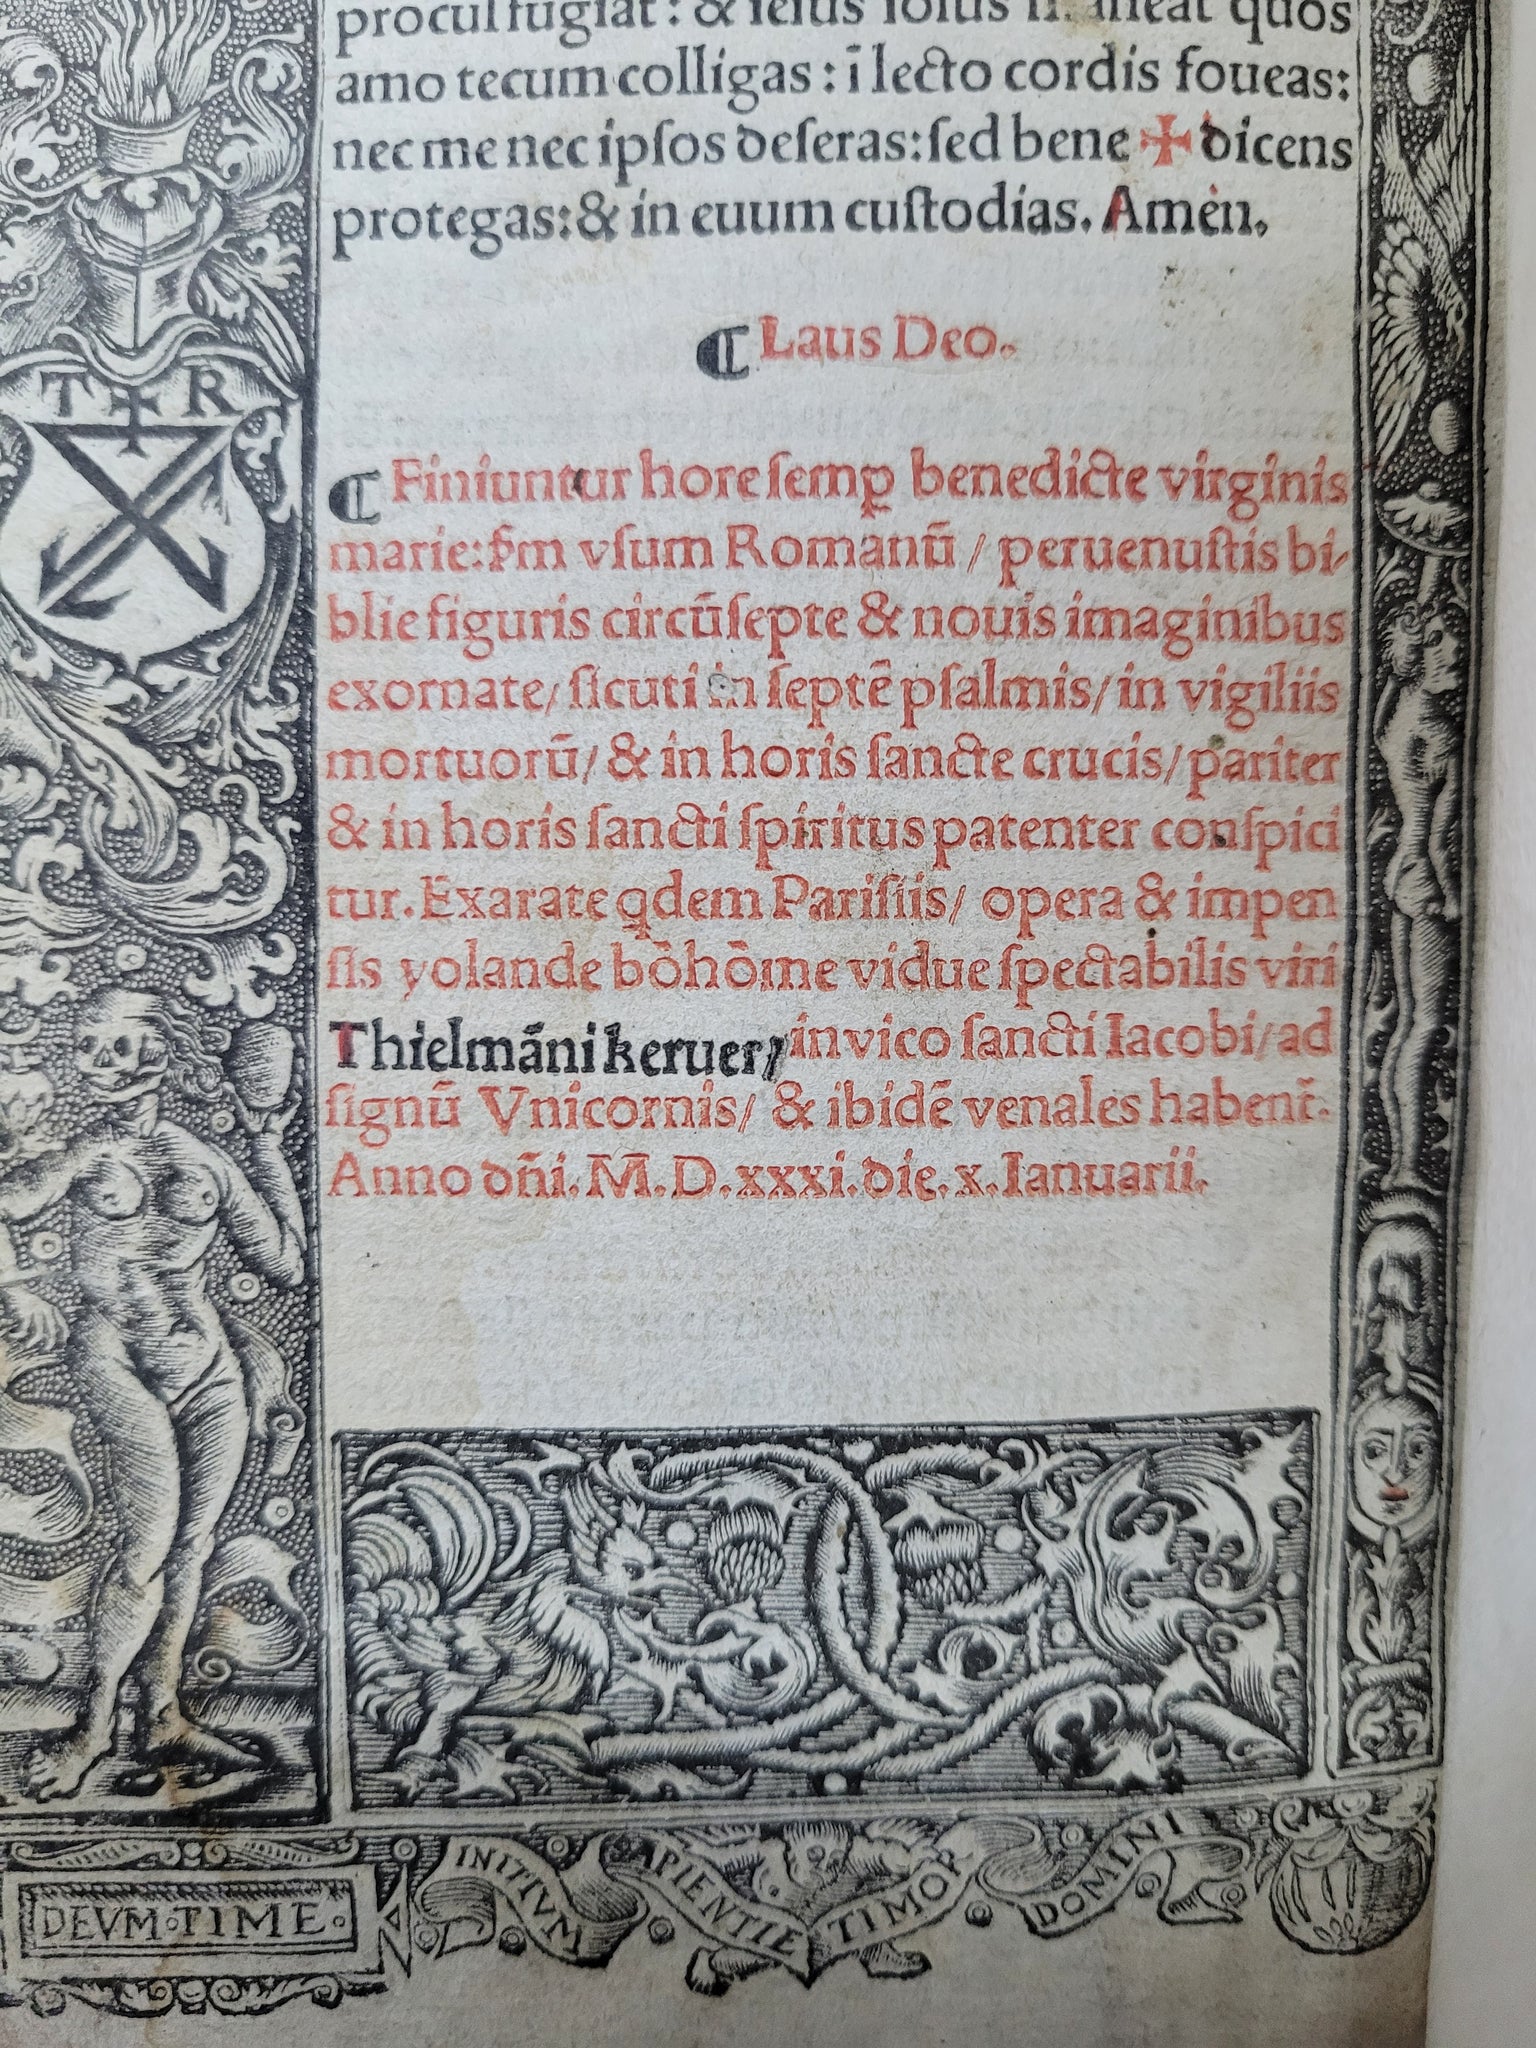 procul fugiat: & ieius ſolus maneat quos
amo tecum colligas: ī lecto cordis foueas:
nec me nec ipſos deſeras: ſed bene ✠ dicens
protegas: & in euum cuſtodias. Amen.
T R
⸿ Laus Deo.
⸿ Finiuntur hore ſemꝑ benedicte virginis
marie: ẜm vſum Romanū / peruenuſtis bi-
blie figuris circūſepte & nouis imaginibus
exornate/ ſicuti in ſeptē pſalmis/ in vigiliis
mortuorū/ & in horis ſancte crucis/ pariter
& in horis ſancti ſpiritus patenter conſpici
tur. Exarate qdem Pariſiis/ opera & impen
ſis yolande bōhōme vidue ſpectabilis viri
Thielmāni keruer/ in vico ſancti Iacobi/ ad
ſignū Vnicornis/ & ibidē venales habent̄.
Anno dn̄i. M̄. D. xxxi. die. x. Ianuarii.
DEVM TIME
INITIVM SAPIENTIE TIMOR DOMINI